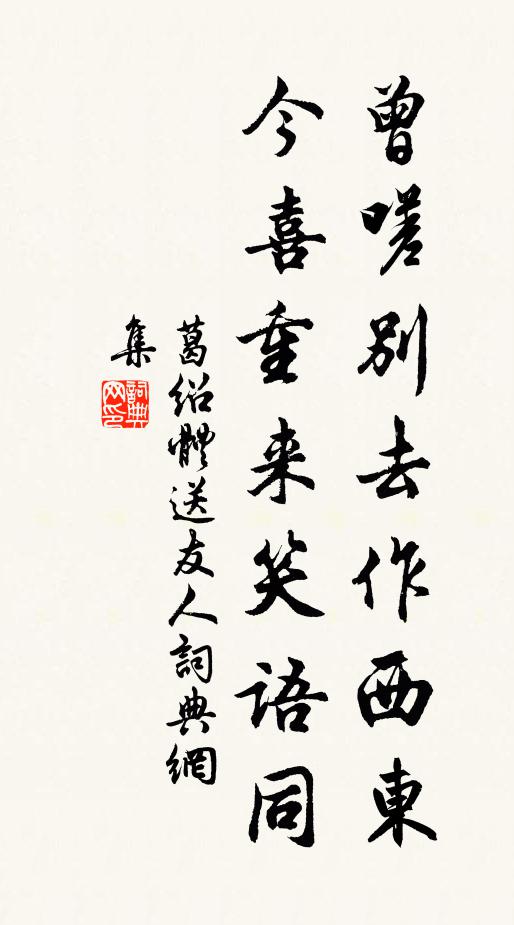 曾嗟別去作西東
今喜重来笑語同
葛紹體送友人詞典網
集
詞典
网印